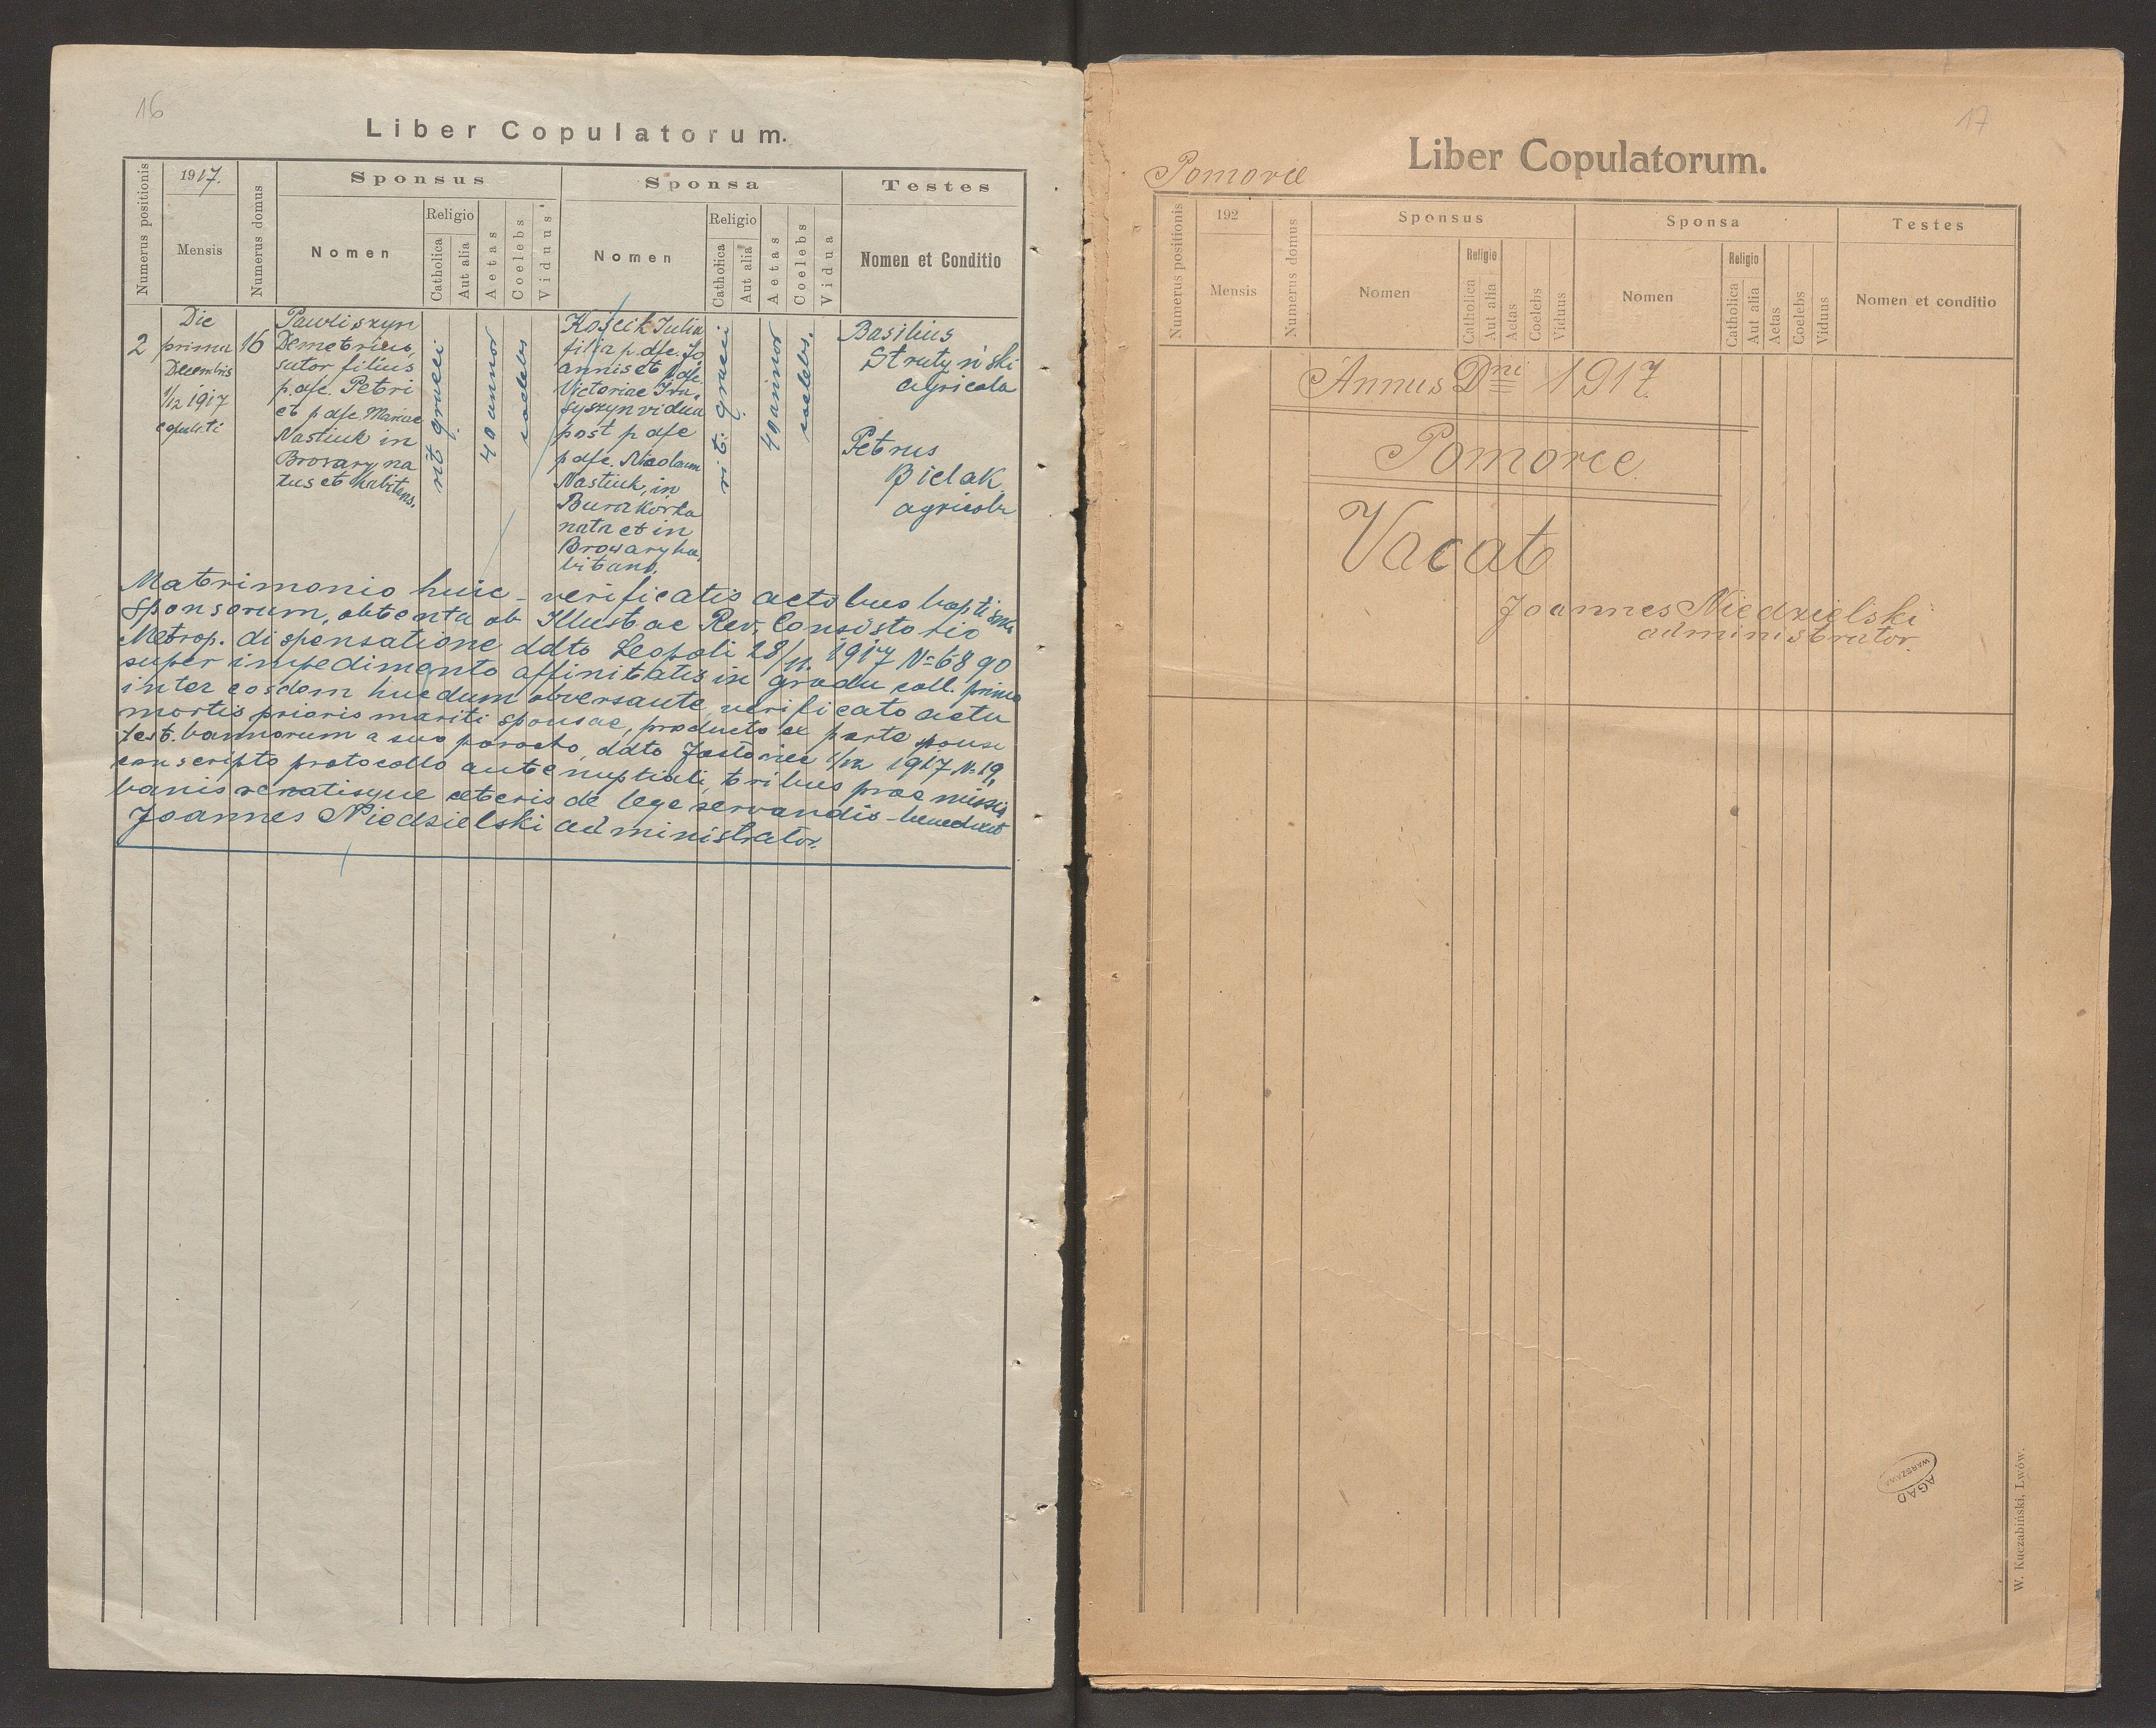 16
Liber Copulatorum.
Numerus positionis
1917.
Mensis
Numerus domus
Sponsus
Nomen
Religio
Catholica
Aut alia
Aetas
Coelebs
Viduus
Sponsa
Nomen
Religio
Catholica
Aut alia
Aetas
Coelebs
Vidua
Testes
Nomen et Conditio
2
Die
prima
Decembris
1/12 1917
copulati
16
Pawliszyn
Demetrius,
sutor filius
p. dfe. Petri
et p dfe. Mariae
Nastiuk in
Browary na
tus et habitans.
rit graeci
40 annor
coelebs
Kościk Julia
filia p. dfe. Jo
annis et p dfe.
Victoriae
vidua
post p dfe
p dfe. Nicolaum
Nastiuk, in
Burakówka
nata et in
Browary ha
bitans.
rit. graeci
40 annor
coelebs.
Basilius
Strutyński
agricola
Petrus
Bielak
agricola
Matrimonio huic - verificatis actibus baptismi
sponsorum, obtenta ab Illust ac Rev. Consistorio
Metrop. dispensatione ddto Leopoli 28/11. 1917 No 6890
super impedimento affinitatis in gradu coll. primo
inter eosdem hucdum obversante, verificato actu
mortis prioris mariti sponsae, producto ex parte sponsi
test. bannorum a suo parocho, ddto 1/12 1917 No 19,
conscripto protocollo antenuptiali, tribus prae missis
banis servatisque ceteris de lege servandis - benedixit
Joannes Niedzielski administrator.
17
Pomorce
Liber Copulatorum.
Numerus positionis
192
Mensis
Numerus domus
Sponsus
Nomen
Religio
Catholica
Aut alia
Aetas
Coelebs
Viduus
Sponsa
Nomen
Religio
Catholica
Aut alia
Aetas
Coelebs
Viduus
Testes
Nomen et conditio
Annus Dni 1917.
Pomorce
Vacat
Joannes Niedzielski
administrator.
AGAD
WARSZAWA
W. Kuczabiński, Lwów.